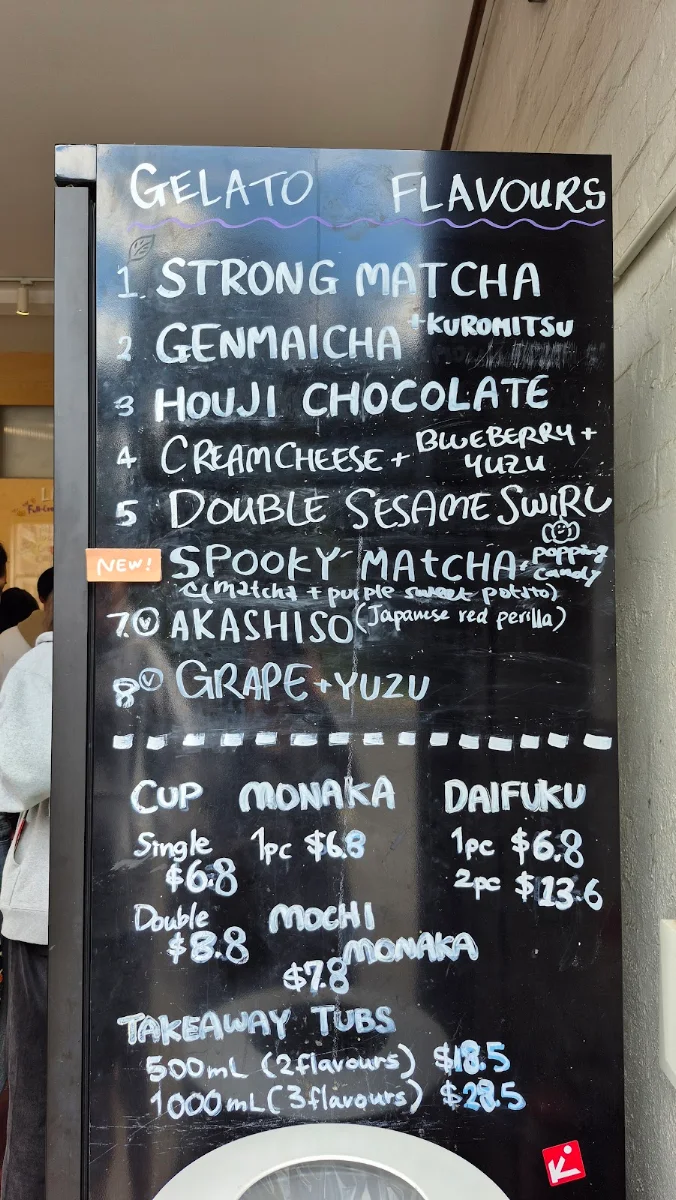 GELATO FLAVOURS
1. STRONG MATCHA
2 GENMAICHA +KUROMITSU
3 HOUJI CHOCOLATE
4 CREAMCHEESE + BLUEBERRY + YUZU
5 DOUBLE SESAME SWIRL
NEW! SPOOKY MATCHA + popping candy
(matcha + purple sweet potato)
7. V AKASHISO (Japanese red perilla)
8 V GRAPE + YUZU
CUP MONAKA DAIFUKU
Single 1pc $6.8 1pc $6.8
$6.8 2pc $13.6
Double MOCHI
$8.8 MONAKA
$7.8
TAKEAWAY TUBS
500mL (2flavours) $18.5
1000mL (3flavours) $28.5